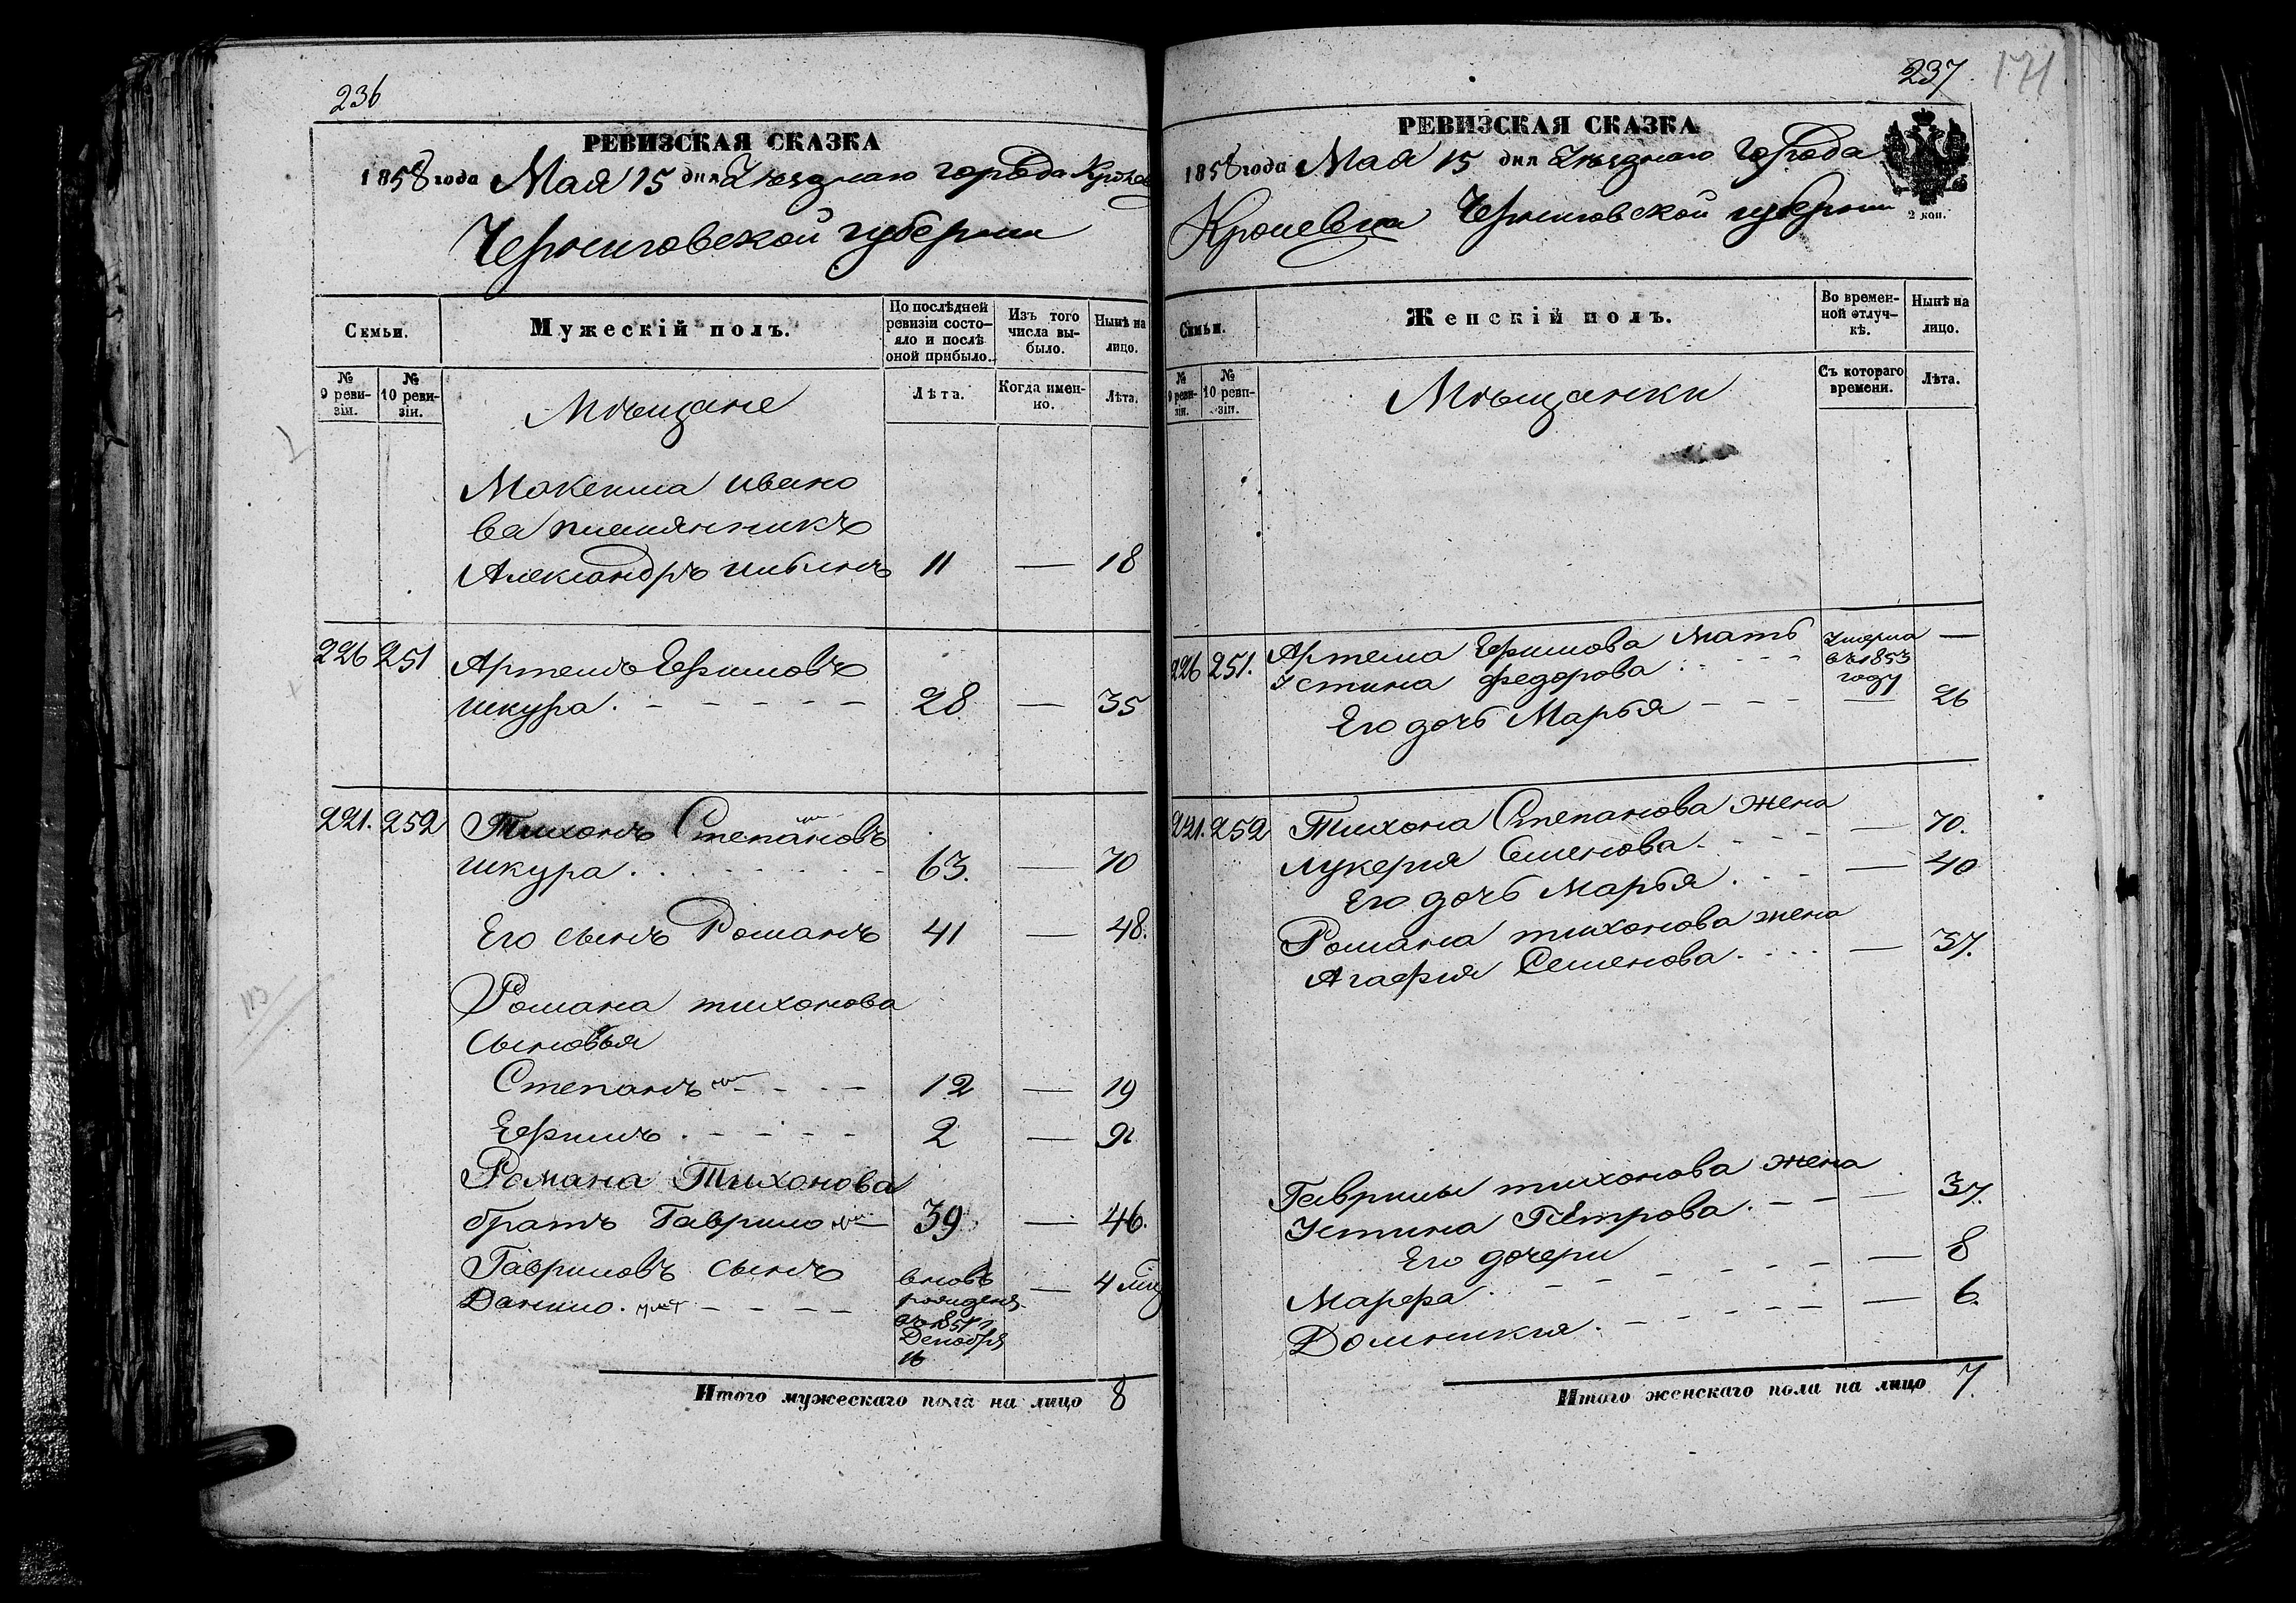 236
РЕВИЗСКАЯ СКАЗКА
1858 года Мая 15 дня Уезднаго города
Черниговской губернии
Семьи.
Мужескій полъ.
По послѣдней ревизіи состо-
яло и послѣ
оной прибыло.
Изъ того
числа вы-
было.
Нынѣ на
лицо.
№
9 реви-
зіи.
№
10 реви-
зіи.
Мѣщане
Лѣта.
Когда имен-
но.
Лѣта.
ивано
ва племянникъ
Александръ 11 — 18
226 251 Артемъ Ефимовъ
шкура 28 — 35
221. 252 Тихонъ Степановъ
шкура 63. — 70
Его сынъ Романъ 41 — 48.
Романа тихонова
сыновья
Степанъ 12 — 19
Ефимъ 2 — 9
Романа Тихонова
братъ Гаврило 39 — 46.
Гавриловъ сынъ
Данило.
вновь
рожденъ
въ 1851 г
Декабря
16
— 4
Итого мужескаго пола на лицо 8
237
171
РЕВИЗСКАЯ СКАЗКА
1858 года Мая 15 дня Уезднаго города
Кролевца Черниговской губернии
2 коп.
Семьи.
Женскій полъ.
Во времен-
ной отлуч-
кѣ.
Нынѣ на
лицо.
№
9 реви-
зіи.
№
10 реви-
зіи.
Мѣщанки
Съ котораго
времени.
Лѣта.
226 251. Артема Ефимова мать
Устина федорова
Умерла
въ 1853
году
—
Его дочь Марья — 26
221. 252 Тихона Степанова жена
Лукерия Семенова — 70.
Его дочь Марья — 40
Романа тихонова жена
Агафия Семенова — 37.
Гаврилы тихонова жена
Устина Петрова — 37.
Его дочери
Марфа — 8
Домникия — 6.
Итого женскаго пола на лицо 7.